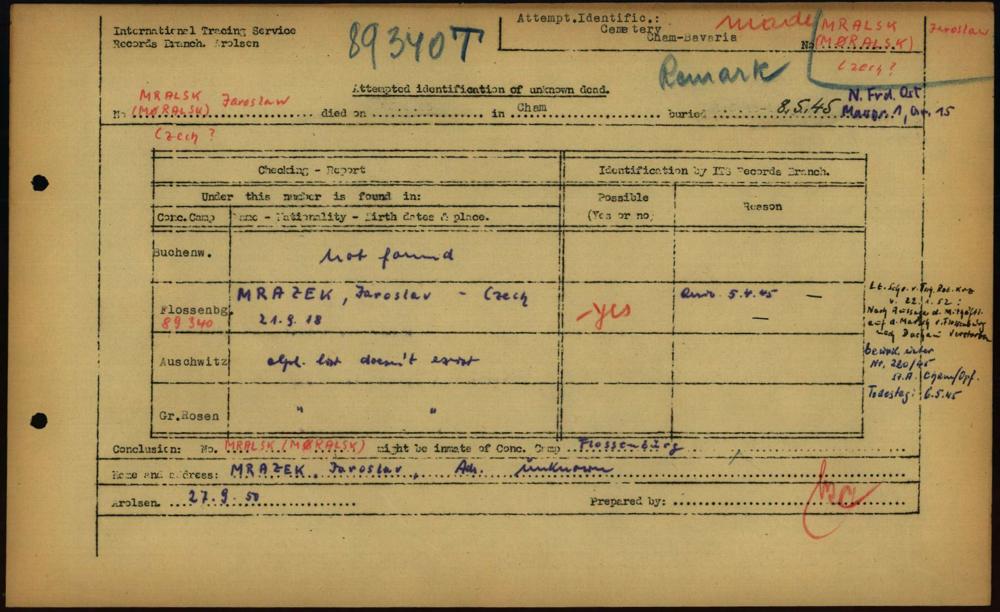 International Tracing Service
Records Branch. Arolsen
89340T
Attempt.Identific.:
Cemetery
Cham-Bavaria
made
No MRALSK
(MØRALSK)
Jaroslaw
Czech?
Remark
Attempted identification of unknown dead.
No MRALSK (MØRALSK) Jaroslaw died on in Cham buried 8.5.45
Czech?
N. Frd. Ost
1, 15
Checking - Report
Identification by ITS Records Branch.
Under this number is found in:
Possible
(Yes or no)
Reason
Conc.Camp
Name - Nationality - Birth dates & place.
Buchenw.
Not found
Flossenbg.
89340
MRAZEK, Jaroslav - Czech
21.9.18
-yes
5.4.45 -
-
Auschwitz
alph. list doesn't exist
Gr.Rosen
" "
v. 22.1.52:
Nach Aussage d.
auf d. Marsch v. Flossenbürg
nach Dachau verstorben
beurk. unter
Nr. 280/45
St.A. Cham/Opf.
Todestag: 6.5.45
Conclusion: No. MRALSK (MØRALSK) might be inmate of Conc. Camp Flossenbürg
Name and address: MRAZEK, Jaroslav, Adr. unknown
Arolsen. 27.9.50
Prepared by: